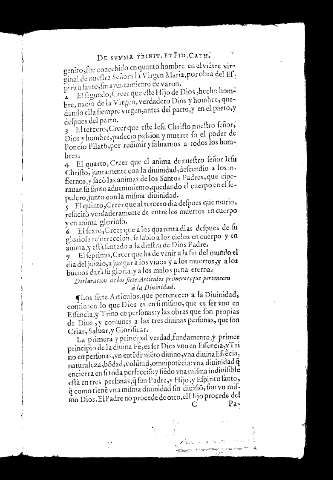 DE SVMMA TRINIT. ET FID. CATH.
genito, fue concebido en quanto hombre en el vientre vir-
ginal de nuestra Señora la Virgen Maria, por obra del Es-
piritu santo, sin ayuntamiento de varon.
2 El segundo, Creer que este Hijo de Dios, hecho hom-
bre, nacio de la Virgen, verdadero Dios y hombre, que-
dando ella siempre virgen, antes del parto, y en el parto, y
despues del parto.
3 El tercero, Creer que este Iesu Christo nuestro señor,
Dios y hombre, padecio passion y muerte so el poder de
Poncio Pilato, por redimir y saluarnos a todos los hom-
bres.
4 El quarto, Creer que el anima de nuestro señor Iesu
Christo, juntamente con la diuinidad, descendio a los in-
fiernos, y sacò las animas de los Santos Padres, que espe-
rauan su santo aduenimiento, quedando el cuerpo en el se-
pulcro, junto con la misma diuinidad.
5 El quinto, Creer que al tercero dia despues que murio,
resucitò verdaderamente de entre los muertos en cuerpo
y en anima glorioso.
6 El sexto, Creer que a los quarenta dias despues de su
gloriosa resurreccion, se subio a los cielos en cuerpo y en
anima, y està sentado a la diestra de Dios Padre.
7 El septimo, Creer que ha de venir a la fin del mundo el
dia del juizio, a juzgar a los viuos y a los muertos, y a los
buenos darà su gloria, y a los malos pena eterna.
Declaracion de los siete Articulos primeros que pertenecen
à la Diuinidad.
¶ Los siete Articulos, que pertenecen a la Diuinidad,
contienen lo que Dios es en si mismo, que es ser vno en
Essencia, y Trino en personas: y las obras que son propias
de Dios, y comunes a las tres diuinas personas, que son
Criar, Saluar, y Glorificar.
La primera y principal verdad, fundamento y primer
principio de la diuina Fè, es ser Dios vno en Essencia, y Tri
no en personas, vn entēdimiento diuino, vna diuina Essēcia,
naturaleza, bōdad, volūtad, omnipotēcia: vna diuinidad q̃
encierra en si toda perfecciō: y siēdo vna misma indiuisible
està en tres personas, q̃ son Padre, y Hijo, y Espiritu santo,
q̃ como tienē vna misma diuinidad sin diuisiō, son vn mis-
mo Dios. El Padre no procede de otro, el Hijo procede del
C Pa-